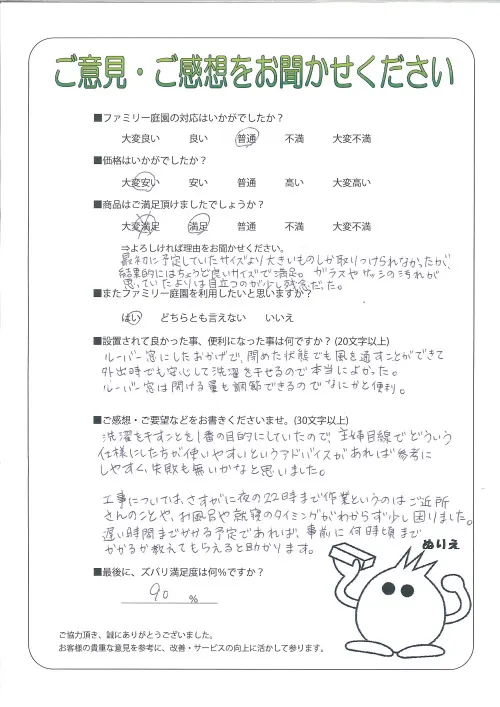 ご意見・ご感想をお聞かせください
■ファミリー庭園の対応はいかがでしたか？
大変良い　良い　普通　不満　大変不満
■価格はいかがでしたか？
大変安い　安い　普通　高い　大変高い
■商品はご満足頂けましたでしょうか？
大変満足　満足　普通　不満　大変不満
⇒よろしければ理由をお聞かせください。
最初に予定していたサイズより大きいものしか取りつけられなかったが、
結果的にはちょうど良いサイズで満足。ガラスやサッシの汚れが
思っていたよりは目立つのが少し残念だった。
■またファミリー庭園を利用したいと思いますか？
はい　どちらとも言えない　いいえ
■設置されて良かった事、便利になった事は何ですか？(20文字以上)
ルーバー窓にしたおかげで、閉めた状態でも風を通すことができて
外出時でも安心して洗濯を干せるので本当によかった。
ルーバー窓は開ける量も調節できるのでなにかと便利。
■ご感想・ご要望などをお書きくださいませ。(30文字以上)
洗濯を干すことを1番の目的にしていたので、主婦目線でどういう
仕様にした方が使いやすいというアドバイスがあれば参考に
しやすく、失敗も無いかなと思いました。
工事については、さすがに夜の22時まで作業というのはご近所
さんのことや、お風呂や就寝のタイミングがわからず少し困りました。
遅い時間までかかる予定であれば、事前に何時頃まで
かかるか教えてもらえると助かります。
ぬりえ
■最後に、ズバリ満足度は何％ですか？
90 ％
ご協力頂き、誠にありがとうございました。
お客様の貴重な意見を参考に、改善・サービスの向上に活かして参ります。